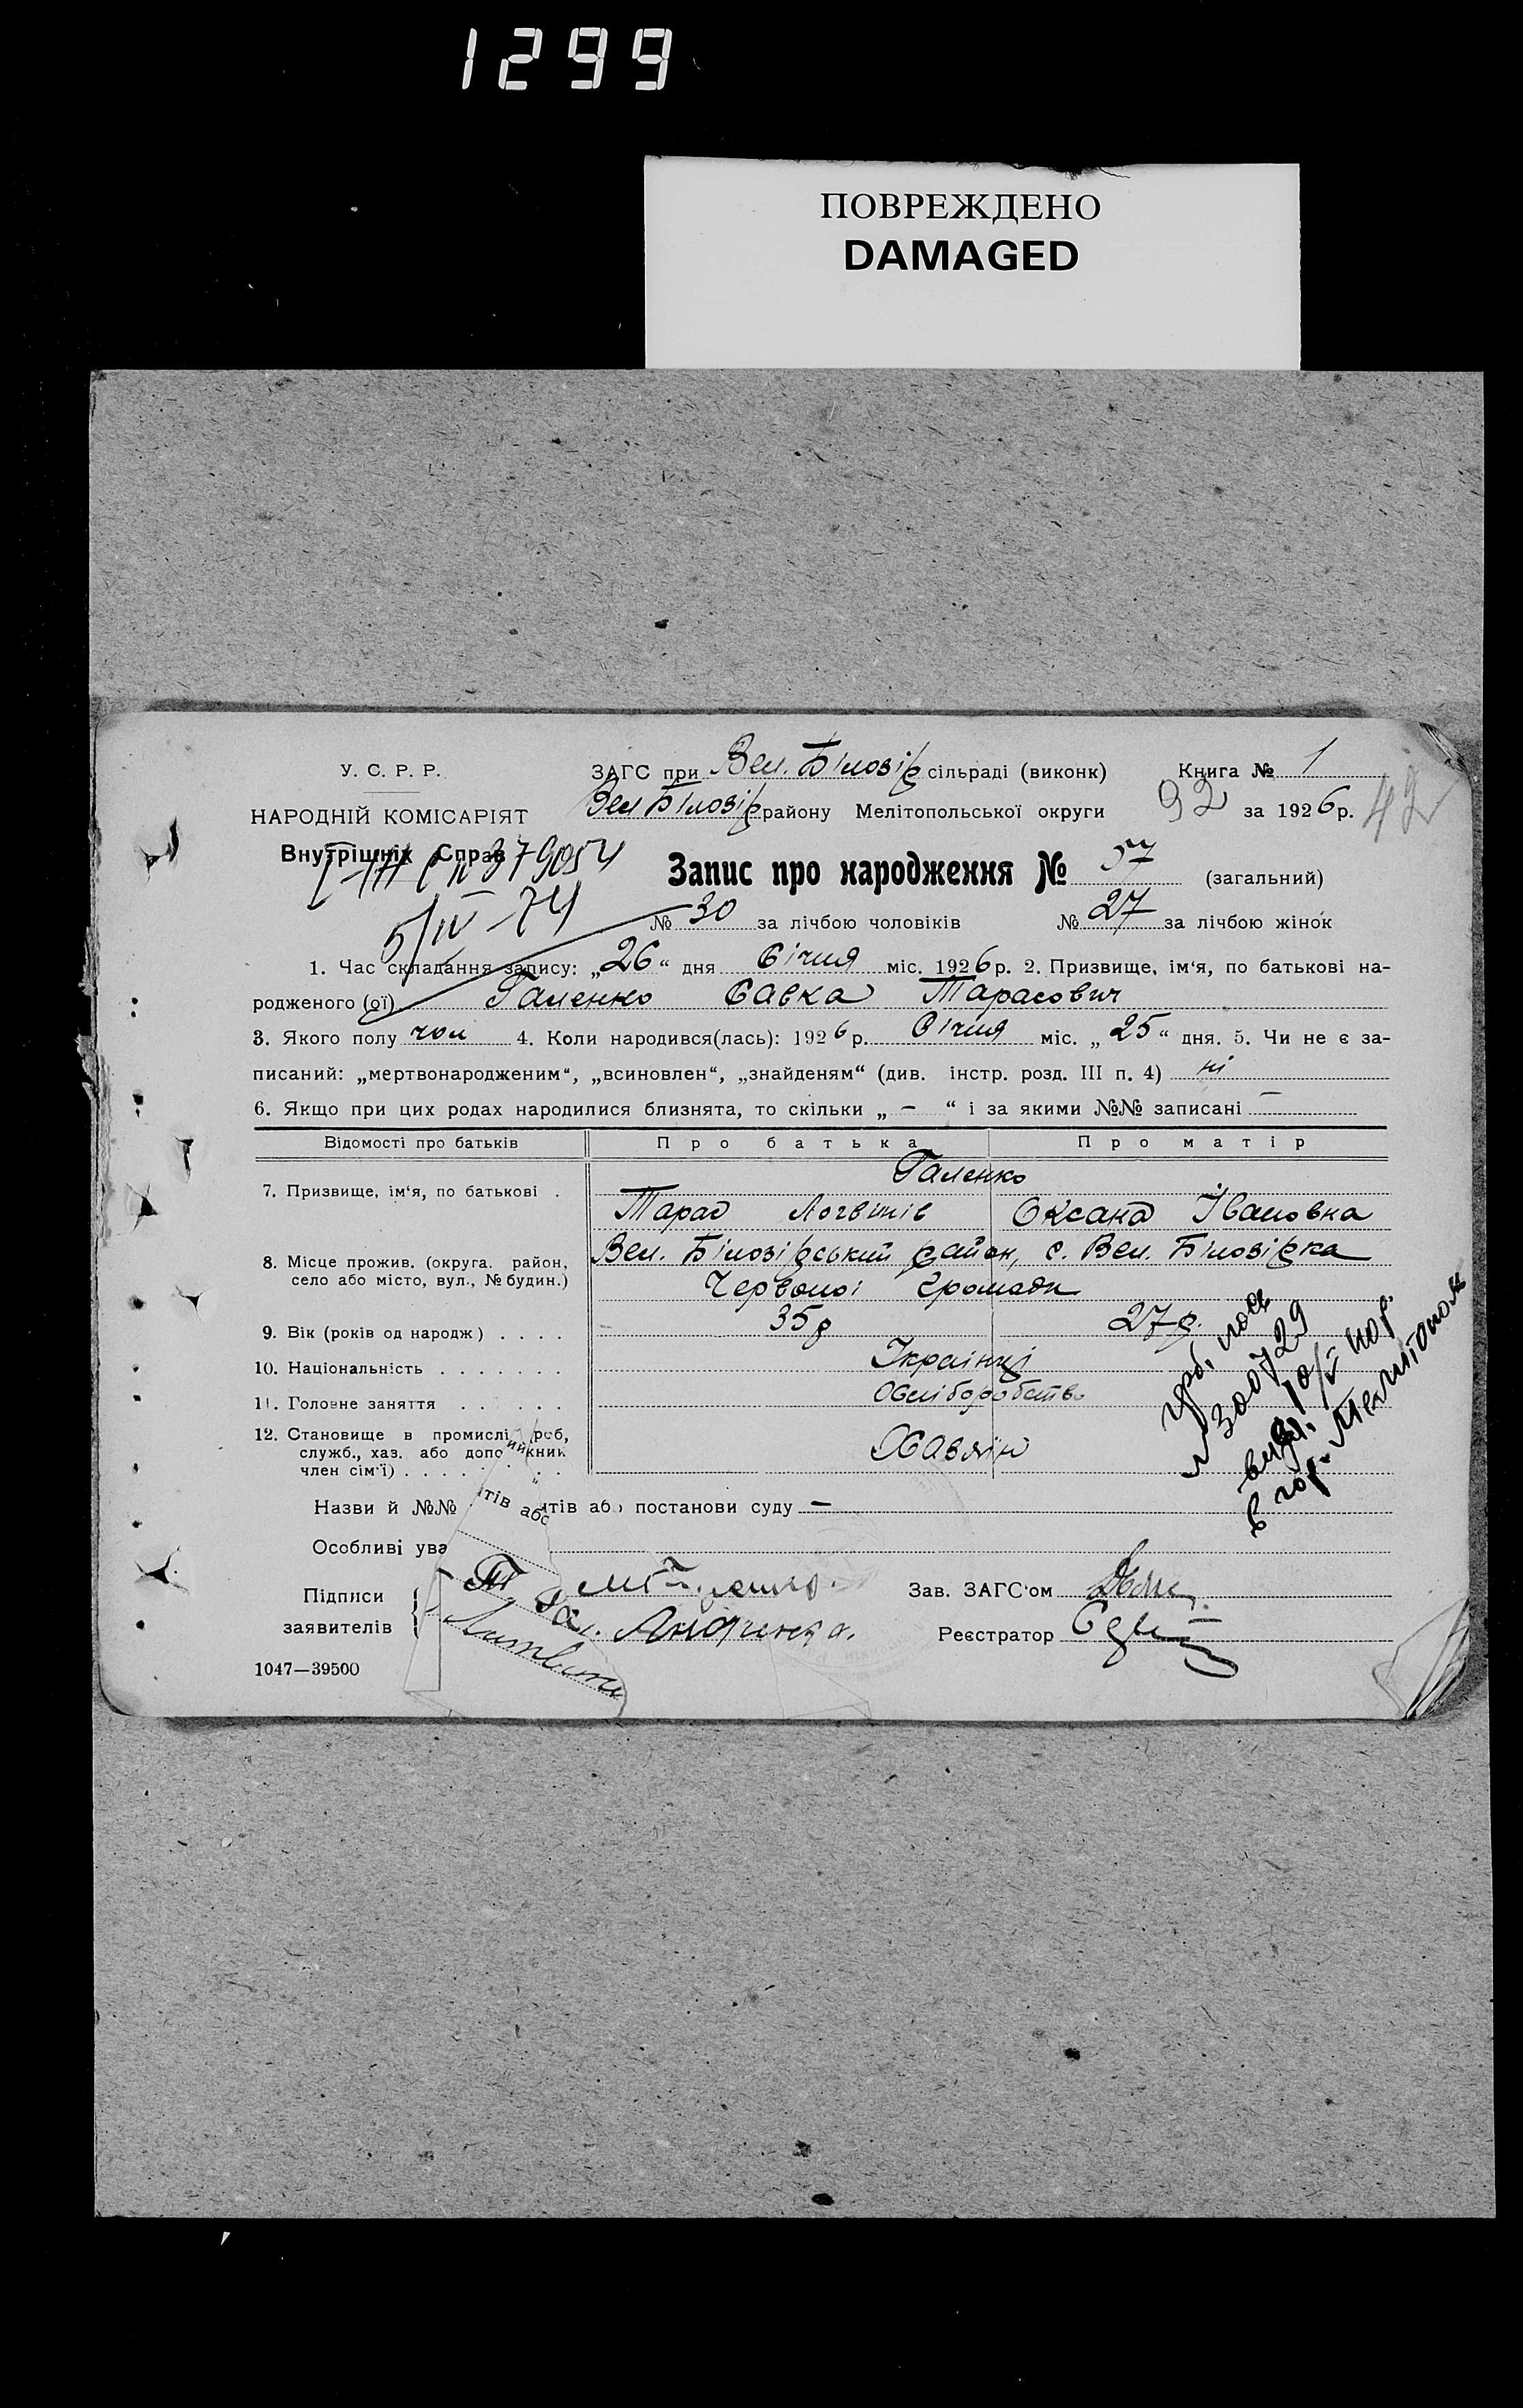 1299
ПОВРЕЖДЕНО
DAMAGED
У. С. Р. Р.
НАРОДНІЙ КОМІСАРІЯТ
Внутрішніх Справ
379054
5/IV-74
ЗАГС при Вел. Білозір сільраді (виконк) Книга № 1
Вел Білозір району Мелітопольської округи 92 за 1926 р. 42
Запис про народження № 57 (загальний)
№ 30 за лічбою чоловіків № 27 за лічбою жінок
1. Час складання запису: „26“ дня Січня міс. 1926 р. 2. Призвище, ім‘я, по батькові на-
родженого (ої) Галенко Савка Тарасович
3. Якого полу чол 4. Коли народився(лась): 1926 р. Січня міс. „25“ дня. 5. Чи не є за-
писаний: „мертвонародженим“, „всиновлен“, „знайденям“ (див. інстр. розд. III п. 4) ні
6. Якщо при цих родах народилися близнята, то скільки „ – “ і за якими №№ записані –
Відомості про батьків Про батька Про матір
7. Призвище, ім‘я, по батькові . Галенко
Тарас Логвинів Оксана Івановна
8. Місце прожив. (округа. район, село або місто, вул., № будин.) Вел. Білозірський район, с. Вел. Білозірка
Червоної громади
9. Вік (років од народж) . . . . 35 р 27 р.
10. Національність . . . . . . . Українці
11. Головне заняття . . . . . . Хліборобство
12. Становище в промислі роб,
служб., хаз. або допо
член сім‘ї) . . . .
300729
в гор. Мелитополь
Назви й №№ тів або постанови суду –
Особливі ува
Підписи
заявителів
Зав. ЗАГС‘ом
Реєстратор
1047—39500